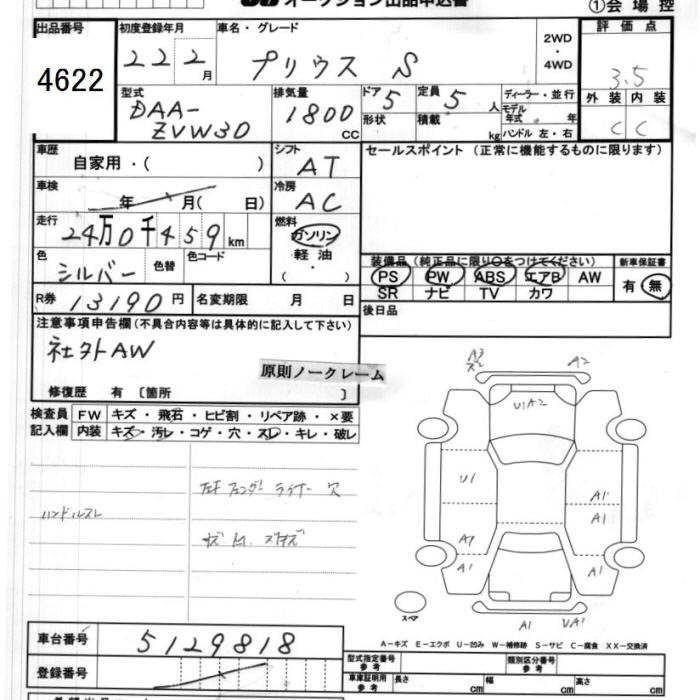 オークション出品申込書
①会場控
出品番号 初度登録年月 車名・グレード 評価点
4622 22 2月 プリウス S 2WD・4WD 3.5
型式 排気量 ドア 定員 ディーラー・並行 外装 内装
DAA-ZVW30 1800cc 5 5人 モデル年式 年 C C
形状 積載 kg ハンドル 左・右
車歴 シフト セールスポイント (正常に機能するものに限ります)
自家用・( ) AT
車検 冷房
年 月( 日) AC
走行 燃料
24万0千459km ガソリン
軽油
・( )
色 シルバー 色替 色コード
装備品 (純正品に限り○をつけてください) 新車保証書
PS PW ABS エアB AW 有 無
SR ナビ TV カワ
R券 13190円 名変期限 月 日
後日品
注意事項申告欄 (不具合内容等は具体的に記入して下さい)
社外AW
原則ノークレーム
修復歴 有 〔箇所 〕
検査員 FW キズ・飛石・ヒビ割・リペア跡・×要
記入欄 内装 キズ・汚レ・コゲ・穴・スレ・キレ・破レ
左F フェンダーライナー 穴
ハンドルスレ
A3 A2
U1A2
U1
A1
A1
A1
A1
A1 UA1
スペア
A-キズ E-エクボ U-凹み W-補修跡 S-サビ C-腐食 XX-交換済
車台番号 5129818
登録番号
型式指定番号 参考 類別区分番号 参考
車庫証明用 参考 長さ cm 幅 cm 高さ cm